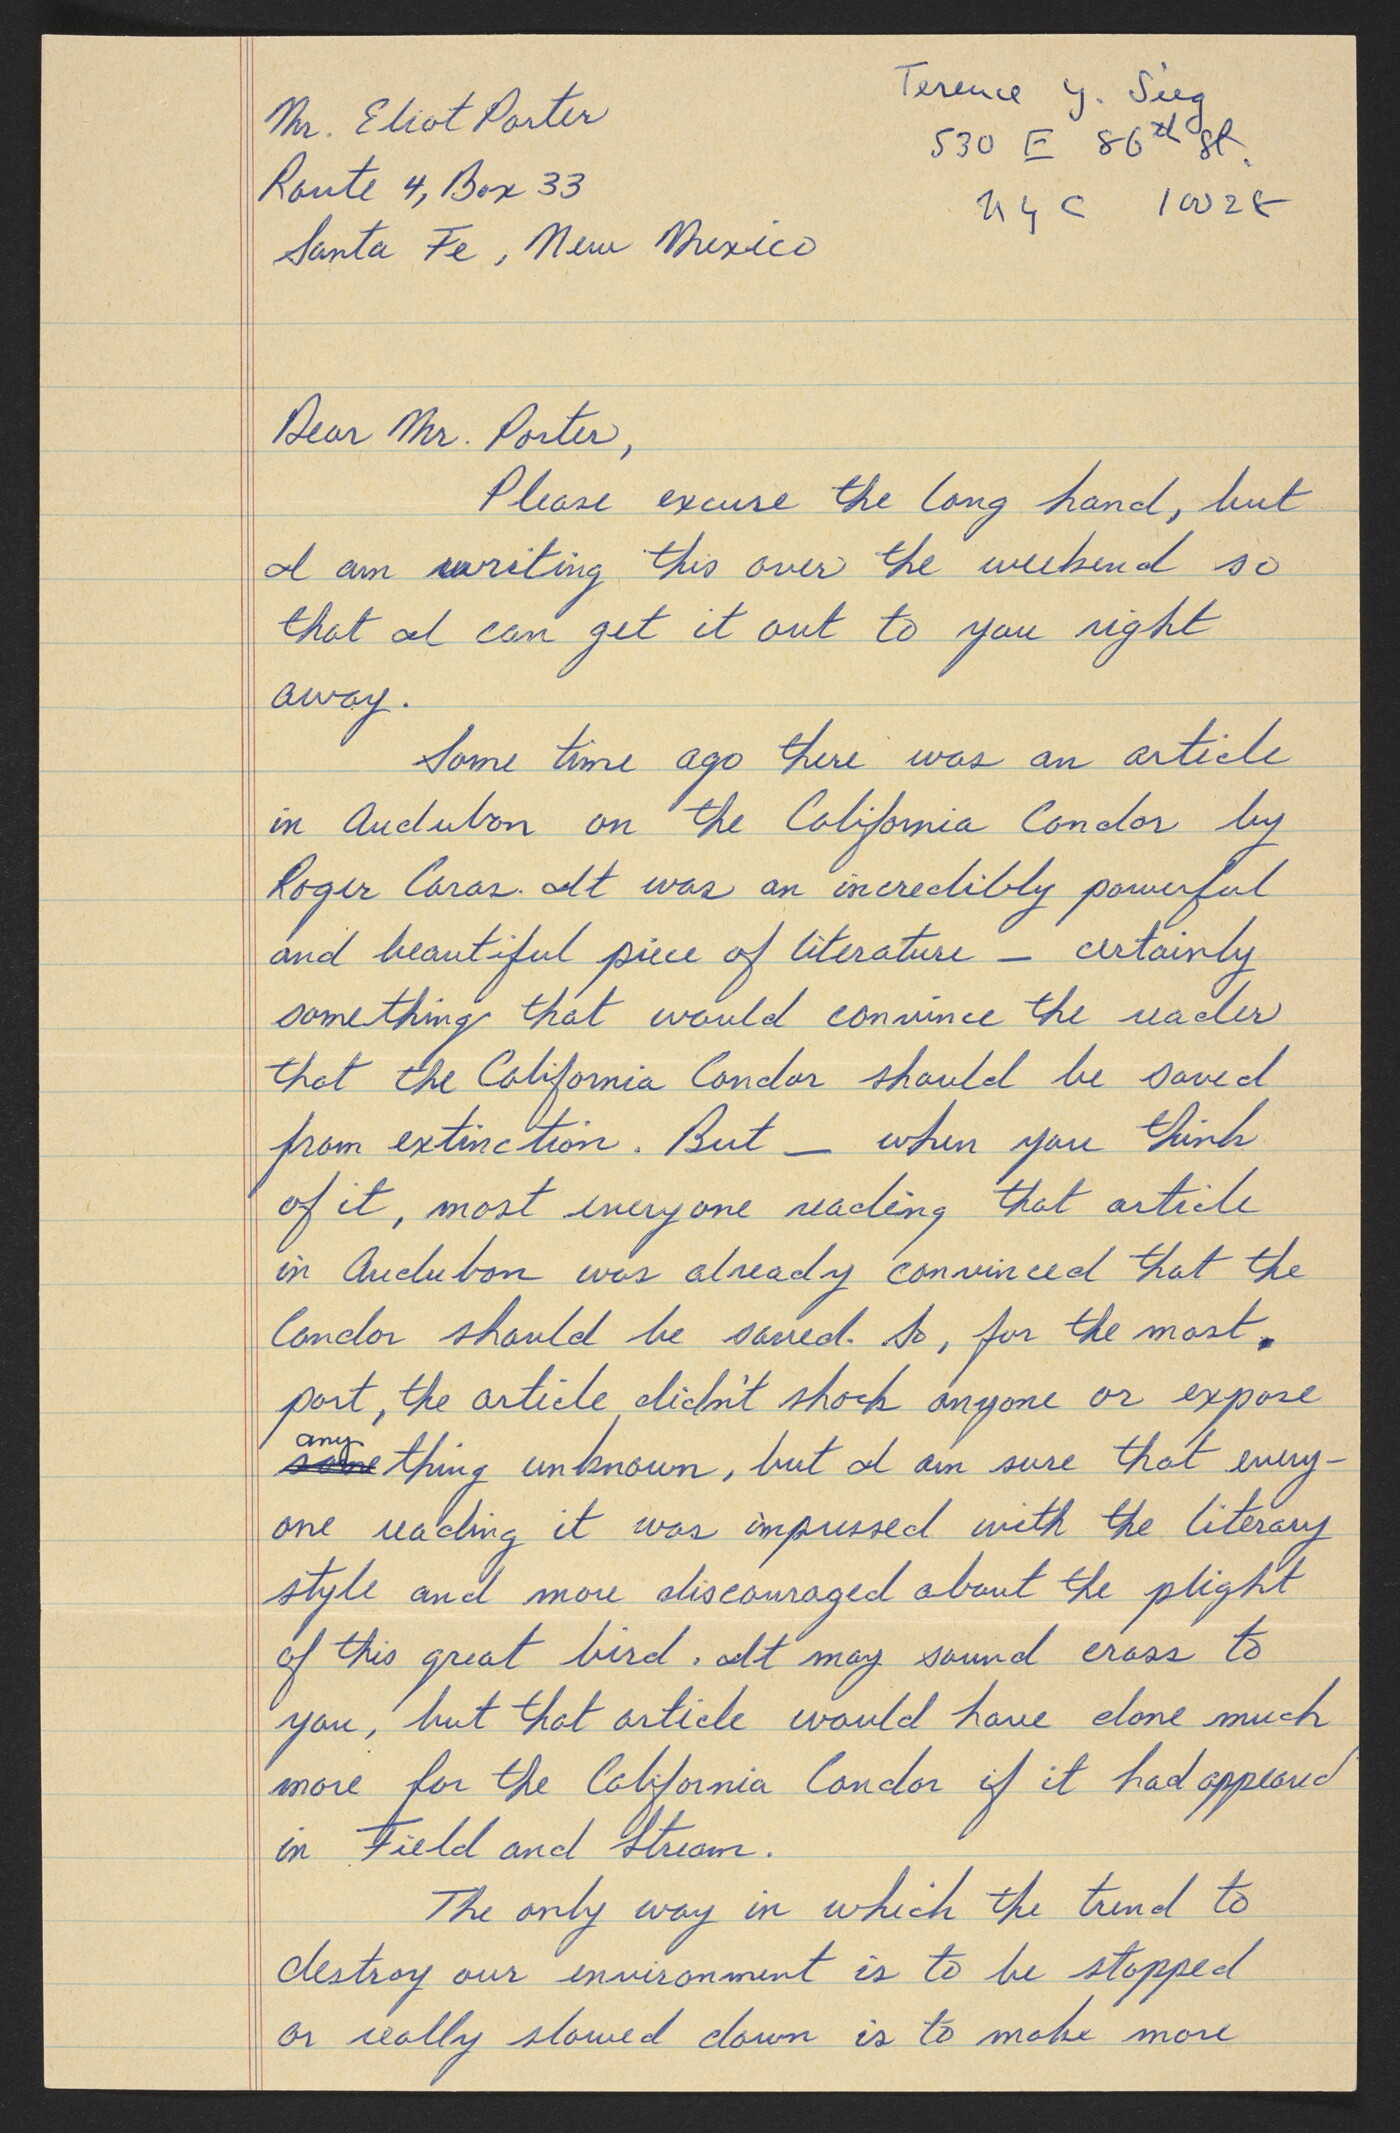 Terence Y. Sieg
530 E 86th St.
NYC 10028
Mr. Eliot Porter
Route 4, Box 33
Santa Fe, New Mexico
Dear Mr. Porter,
Please excuse the long hand, but
I am writing this over the weekend so
that I can get it out to you right
away.
Some time ago there was an article
in Audubon on the California Condor by
Roger Caras. It was an incredibly powerful
and beautiful piece of literature – certainly
something that would convince the reader
that the California Condor should be saved
from extinction. But – when you think
of it, most everyone reading that article
in Audubon was already convinced that the
Condor should be saved. So, for the most
part, the article didn't shock anyone or expose
any
something unknown, but I am sure that every-
one reading it was impressed with the literary
style and more discouraged about the plight
of this great bird. It may sound crass to
you, but that article would have done much
more for the California Condor if it had appeared
in Field and Stream.
The only way in which the trend to
destroy our environment is to be stopped
or really slowed down is to make more